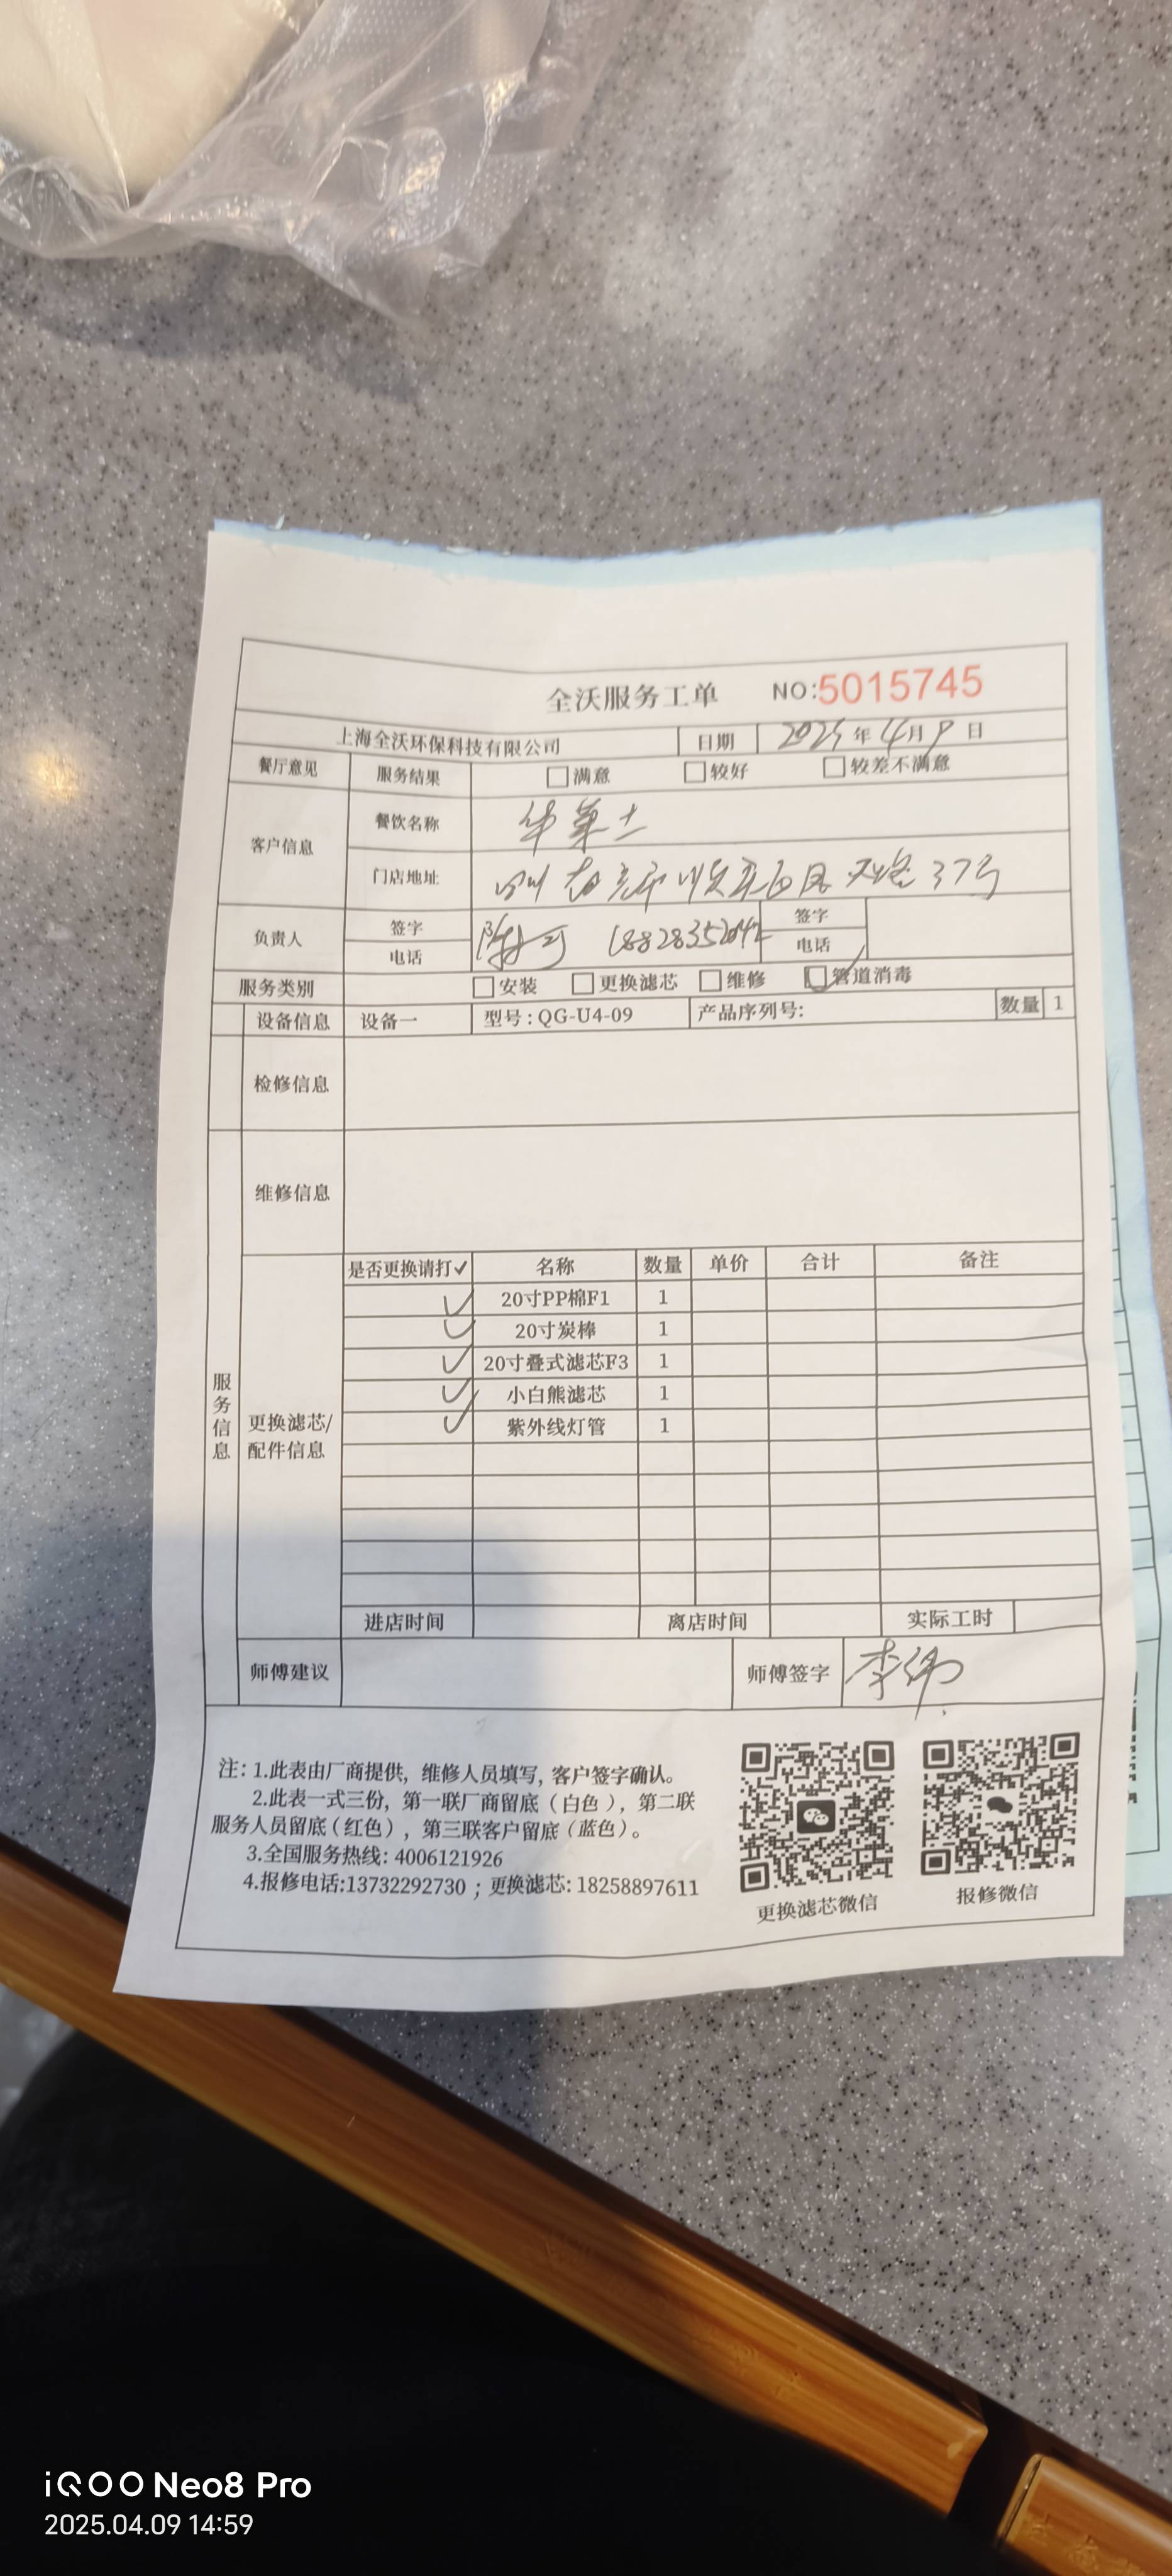 全沃服务工单 NO:5015745
上海全沃环保科技有限公司 日期 2025年4月9日
餐厅意见 服务结果 □满意 □较好 □较差不满意
客户信息 餐饮名称 华莱士
门店地址 37号
负责人 签字 签字
电话 电话
服务类别 □安装 □更换滤芯 □维修 □管道消毒
设备信息 设备一 型号:QG-U4-09 产品序列号: 数量 1
检修信息
维修信息
服务信息
更换滤芯/配件信息
是否更换请打✓ 名称 数量 单价 合计 备注
✓ 20寸PP棉F1 1
✓ 20寸炭棒 1
✓ 20寸叠式滤芯F3 1
✓ 小白熊滤芯 1
✓ 紫外线灯管 1
进店时间 离店时间 实际工时
师傅建议 师傅签字 李伟
注: 1.此表由厂商提供, 维修人员填写, 客户签字确认。
2.此表一式三份, 第一联厂商留底(白色), 第二联
服务人员留底(红色), 第三联客户留底(蓝色)。
3.全国服务热线: 4006121926
4.报修电话:13732292730 ; 更换滤芯: 18258897611
更换滤芯微信 报修微信
iQOO Neo8 Pro
2025.04.09 14:59